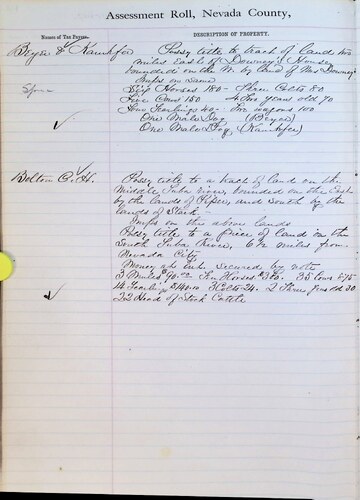 Assessment Roll, Nevada County,
Names of Tax Payers.
DESCRIPTION OF PROPERTY.
Beyer & Kamhfer Possy title to tract of land two
miles East of Downey's House
bounded on the N. by land of Downey's
Imps on Same
Six Horses 180 - Three Colts 80
Five Cows 150 4 Two years old 70
Four Yearlings 40 - wagons 100
One Male Dog (Beyer)
One Male Dog (Kamhfer)
Belton C. H. Possy title to a tract of land on the
Middle Yuba river, bounded on the East
by the lands of and South by the
lands of
Imps on the above lands
Possy title to a piece of land on the
South Yuba River, 6 1/2 miles from
Nevada City
Money at Int. secured by note
3 Mules 90.00 Ten Horses $300. 35 Cows 875
14 Yearlings $140.00 3 Colts 24. 2 Three years old 30
22 Head of Stock Cattle